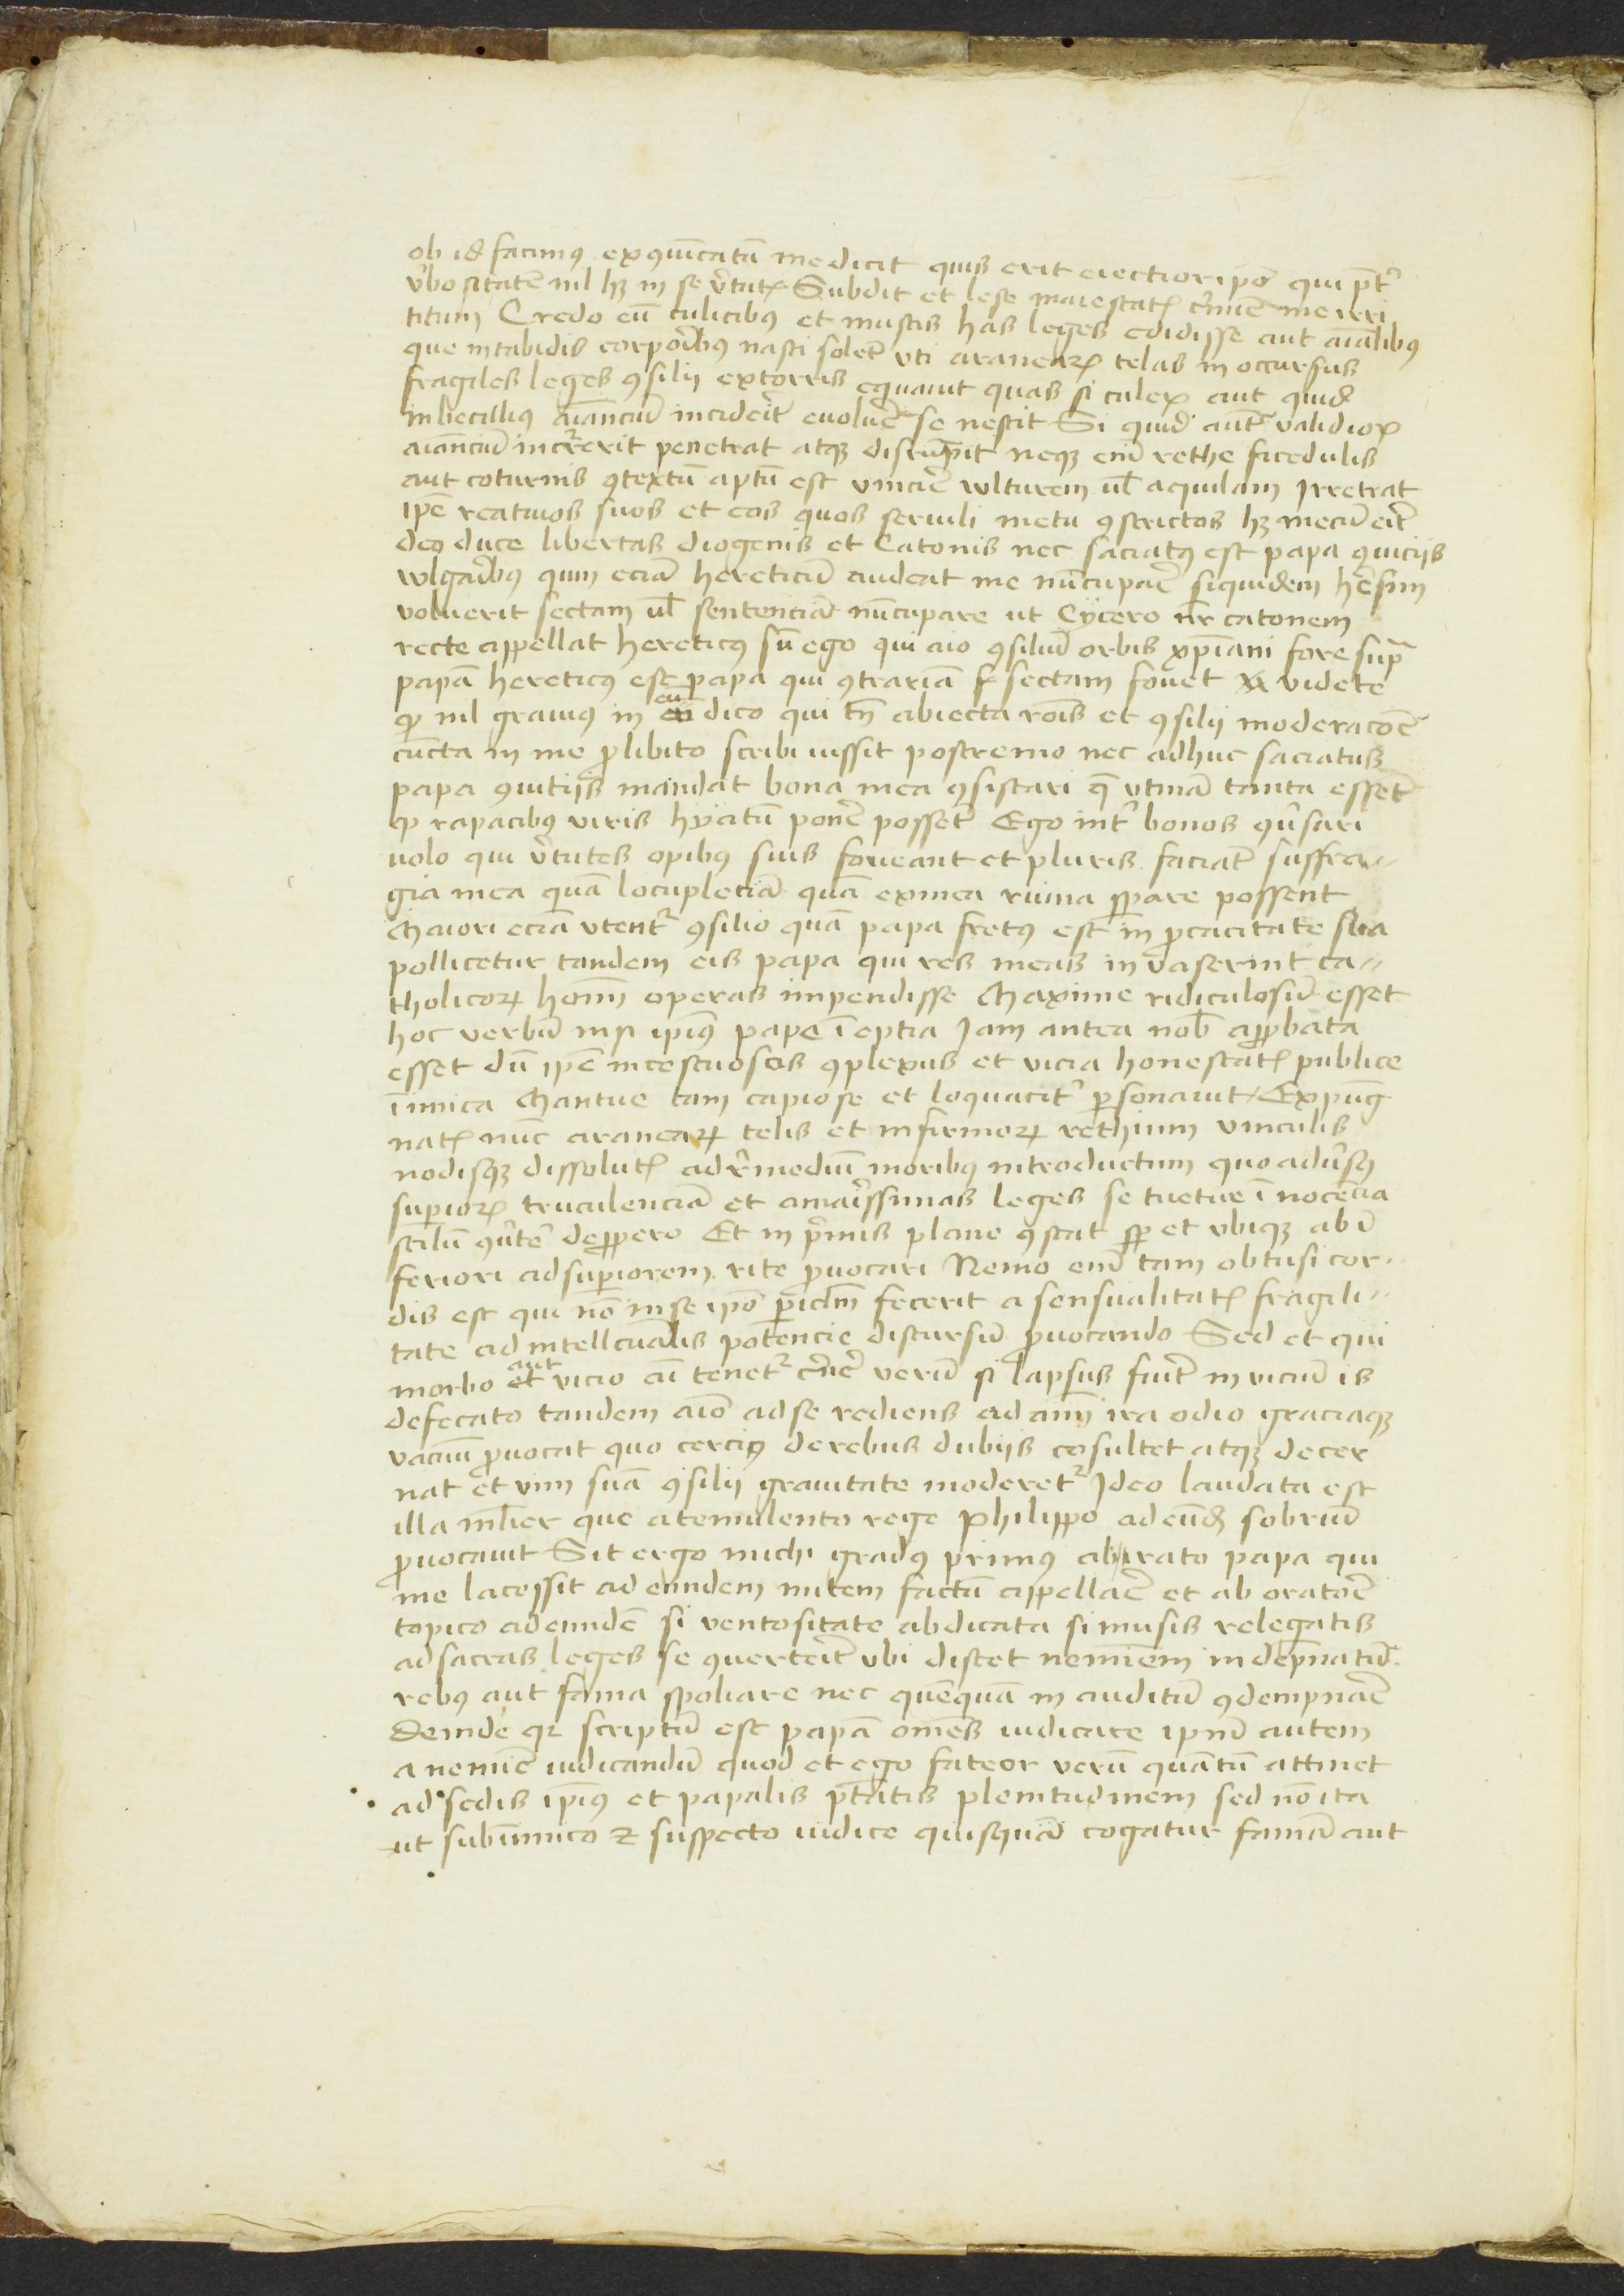 ob id facinus exͻuicatū me dicit quis erit eiectior ipo᷒ qui p̄t᷒
v᷒bositatē nil hꝫ in se v᷒tutꝭ Subdit et lese maiestatꝭ c᷒mīe me irri
titum Credo eū culicibꝰ et muscis has leges edidisse aut aīalibꝰ
que in tabidis corporibꝰ nasci solēt vti aranearꝝ telas in occursus
fragiles leges ꝯsilij extorris equauit quas si culex aut quid
inbecillius aīanciū inciderit euolue᷒ se nescit Si quid aūt validiorꝭ
aīanciū incurrerit penetrat atqꝫ disrūpit neqꝫ enī rethe ficedulis
aut coturnis ꝯtextū aptū est vincire wlturem ul̄ aquilam Irretiat
ipē reatiuos suos et eos quos seruili metu ꝯstrictos hꝫ mecū erit
deo duce libertas diogenis et Catonis nec saciatꝰ est papa ꝯuicijs
wlgaribꝰ quin eciā hereticū audeat me nūcupare siquidem heresim
voluerit sectam ul̄ sentenciā nūcupare ut Cycero nr̄ catonem
recte appellat hereticꝰ sū ego qui aio ꝯsiliū orbis xp̄iani fore supra
papā hereticꝰ est papa qui ꝯtrariā sectam fouet videte
ꝙ nil grauiꝰ in eū dico qui tn̄ abiecta rōis et ꝯsilij moderacōe
cūcta in me ꝓ libito scribi iussit postremo nec adhuc saciatus
papa ꝯuitijs mandat bona mea ꝯfiscari q̄ vtinā tanta essēt
ꝙ rapacibꝰ viris hyatū ponere possēt Ego int᷒ bonos ꝯu᷒sari
uolo qui v᷒tutes opibꝰ suis foueant et pluris faciāt suffra⸗
gia mea quā locupletiā quā ex mea ruina sperare possent
Maiori eciā vtent᷒ ꝯsilio quā papa fretꝰ est in ꝓcacitate sua
pollicetur tandem eis papa qui res meas inuaserint ca⸗
tholicorꝝ hoīm operas impendisse Maxime ridiculosū esset
hoc verbū nisi ipiꝰ pape īeptia Jam antea nob̄ aꝓbata
esset dū ipē incestuosos ꝯplexus et vicia honestatꝭ publice
īimica Mantue tam copiose et loquacit᷒ personauit Expūg
natꝭ nūc aranearꝝ telis et infirmorꝝ rethium vinculis
nodisqꝫ dissolutꝭ ad remediū moribꝰ introductum quo adu᷒sꝰ
superiorꝝ truculenciā et amarissimas leges se tuetur īnocēcia
stilū ꝯu᷒te᷒ depropero Et in p᷒mis plane ꝯstat sp̄ et vbiqꝫ ab ī
feriori ad superiorem rite ꝓuocari Nemo enī tam obtusi cor⸗
dis est qui nō in se ipo᷒ periclm̄ fecerit a sensualitatꝭ fragili⸗
tate ad intell̄cualis potencie discursū ꝓuocando Sed et qui
morbo aut vicio aīi tenet᷒ c᷒ne᷒ verū si lapsus fuit᷒ in viciū is
defecato tandem aīo ad se rediens ad aīm ira odio graciaqꝫ
vacuū ꝓuocat quo cerciꝰ de rebus dubijs cōsultet atqꝫ decer
nat et vim suā ꝯsilij grauitate moderet᷒ Ideo laudata est
illa ml̄ier que a temulento rege Philippo ad eūdē sobriū
ꝓuocauit Sit ergo michi gradꝰ primꝰ ab irato papa qui
me lacessit ad eundem mitem factū appellare et ab oratore
topico ad eundē si ventositate abdicata si musis relegatis
ad sacras leges se ꝯuerterit vbi discet neminem indēpnatū
rebꝰ aut fama spoliare nec quēquā inauditū ꝯdempnare
Deinde qꝛ scriptū est papā omēs iudicare ipm̄ autem
a nemīe iudicandū quod et ego fateor verū quātū attinet
ad sedis ipiꝰ et papalis p̄tatis plenitudinem sed nō ita
ut sub inimico ⁊ suspecto iudice quisquā cogatur famā aut